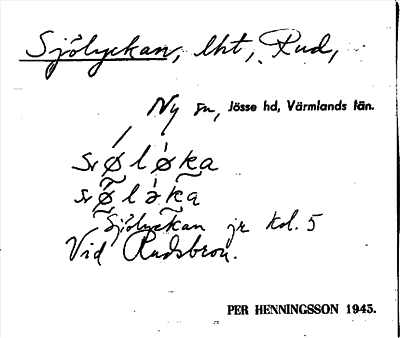 Sjölyckan, lht, Rud,
Ny sn, Jösse hd, Värmlands län.
Sjölyckan jr kol. 5
Vid Rudsbron.
PER HENNINGSSON 1945.